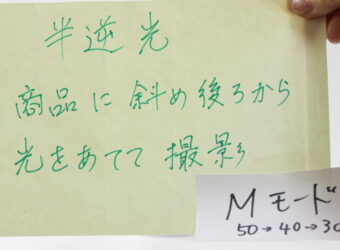 半逆光
商品に斜め後ろから
光をあてて撮影
Mモード
50→40→30